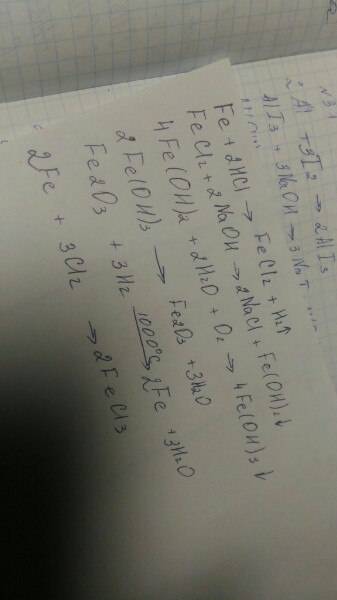 N 31
2Al + 3I2 → 2AlI3
AlI3 + 3NaOH → 3NaI
Fe + 2HCl → FeCl2 + H2↑
FeCl2 + 2NaOH → 2NaCl + Fe(OH)2↓
4Fe(OH)2 + 2H2O + O2 → 4Fe(OH)3↓
2Fe(OH)3 → Fe2O3 + 3H2O
Fe2O3 + 3H2 1000°C→ 2Fe + 3H2O
2Fe + 3Cl2 → 2FeCl3